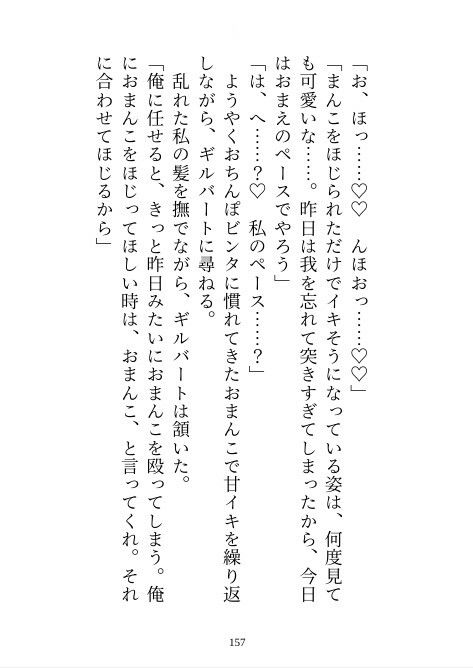 「お、ほっ……♡♡　んほおっ……♡♡」
「まんこをほじられただけでイキそうになっている姿は、何度見て
も可愛いな……。昨日は我を忘れて突きすぎてしまったから、今日
はおまえのペースでやろう」
「は、へ……？♡　私のペース……？」
　ようやくおちんぽビンタに慣れてきたおまんこで甘イキを繰り返
しながら、ギルバートに尋ねる。
　乱れた私の髪を撫でながら、ギルバートは頷いた。
「俺に任せると、きっと昨日みたいにおまんこを殴ってしまう。俺
におまんこをほじってほしい時は、おまんこ、と言ってくれ。それ
に合わせてほじるから」
157